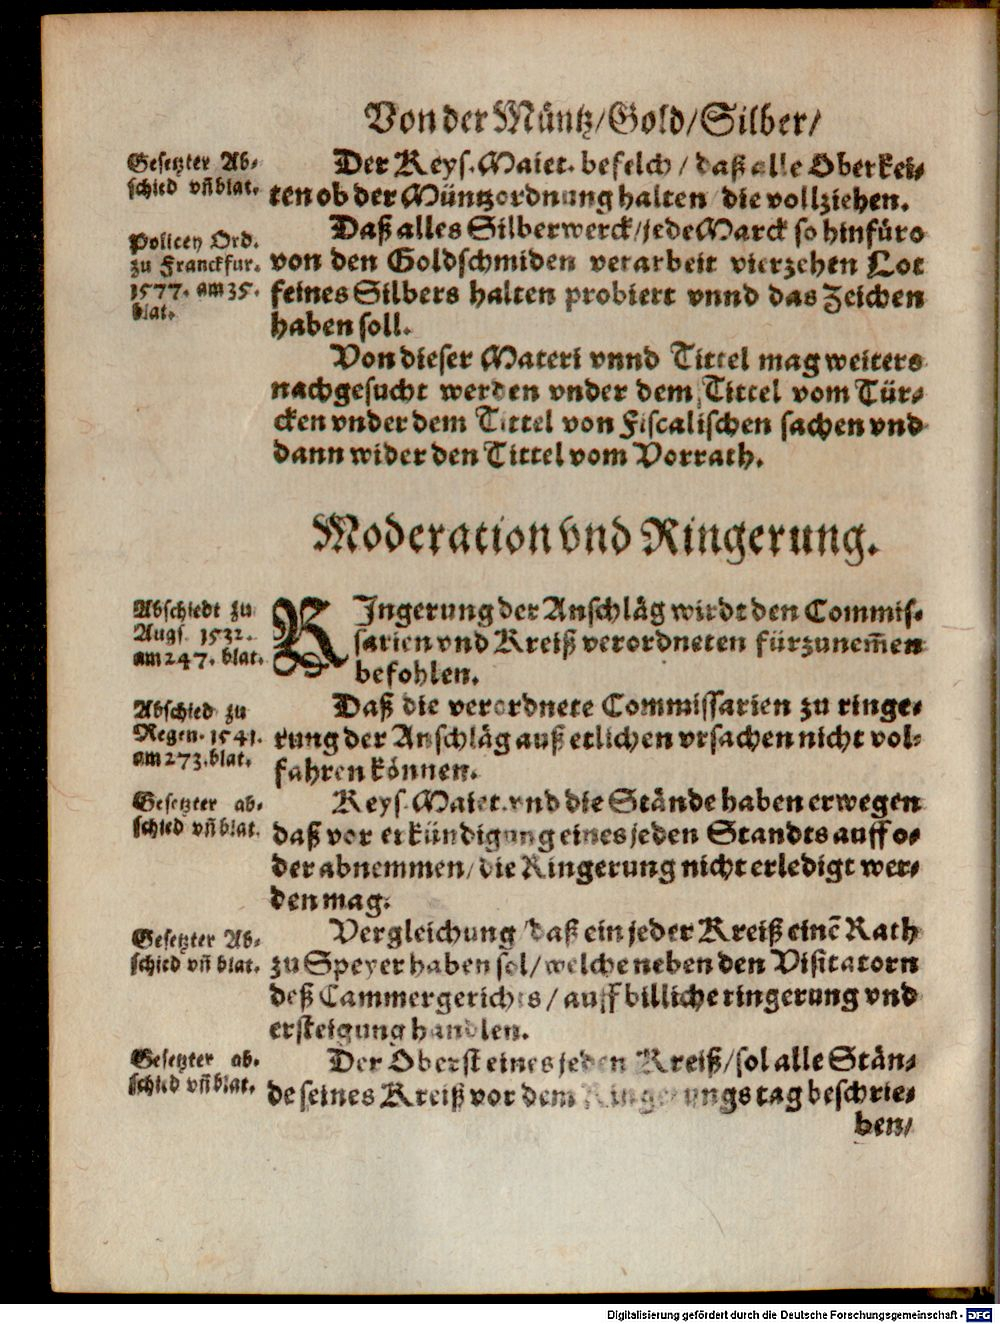 Von der Müntz/Gold/Silber/
Gesetzter Ab-
schied vñ blat.
Der Keys. Maiet. befelch / daß alle Oberkei-
ten ob der Müntzordnung halten / die vollziehen.
Policey Ord.
zu Franckfur.
1577. am 35.
blat.
Daß alles Silberwerck/jede Marck so hinfüro
von den Goldschmiden verarbeit vierzehen Lot
feines Silbers halten probiert vnnd das Zeichen
haben soll.
Von dieser Materi vnnd Tittel mag weiters
nachgesucht werden vnder dem Tittel vom Tür-
cken vnder dem Tittel von Fiscalischen sachen vnd
dann wider den Tittel vom Vorrath.
Moderation vnd Ringerung.
Abschiedt zu
Augs. 1532.
am 247. blat.
RIngerung der Anschläg wirdt den Commis-
sarien vnd Kreiß verordneten fürzunem̃en
befohlen.
Abschied zu
Regen. 1541.
am 273. blat.
Daß die verordnete Commissarien zu ringe-
rung der Anschläg auß etlichen vrsachen nicht vol-
fahren können.
Gesetzter ab-
schied vñ blat.
Keys. Maiet. vnd die Stände haben erwegen
daß vor erkündigung eines jeden Standts auff o-
der abnemmen/ die Ringerung nicht erledigt wer-
den mag.
Gesetzter Ab-
schied vñ blat.
Vergleichung / daß ein jeder Kreiß einẽ Rath
zu Speyer haben sol/ welche neben den Visitatorn
deß Cammergerichts / auff billiche ringerung vnd
ersteigung handlen.
Gesetzter ab-
schied vñ blat.
Der Oberst eines jeden Kreiß/sol alle Stän-
de seines Kreiß vor dem Ringerungstag beschrie-
ben/
Digitalisierung gefördert durch die Deutsche Forschungsgemeinschaft - DFG